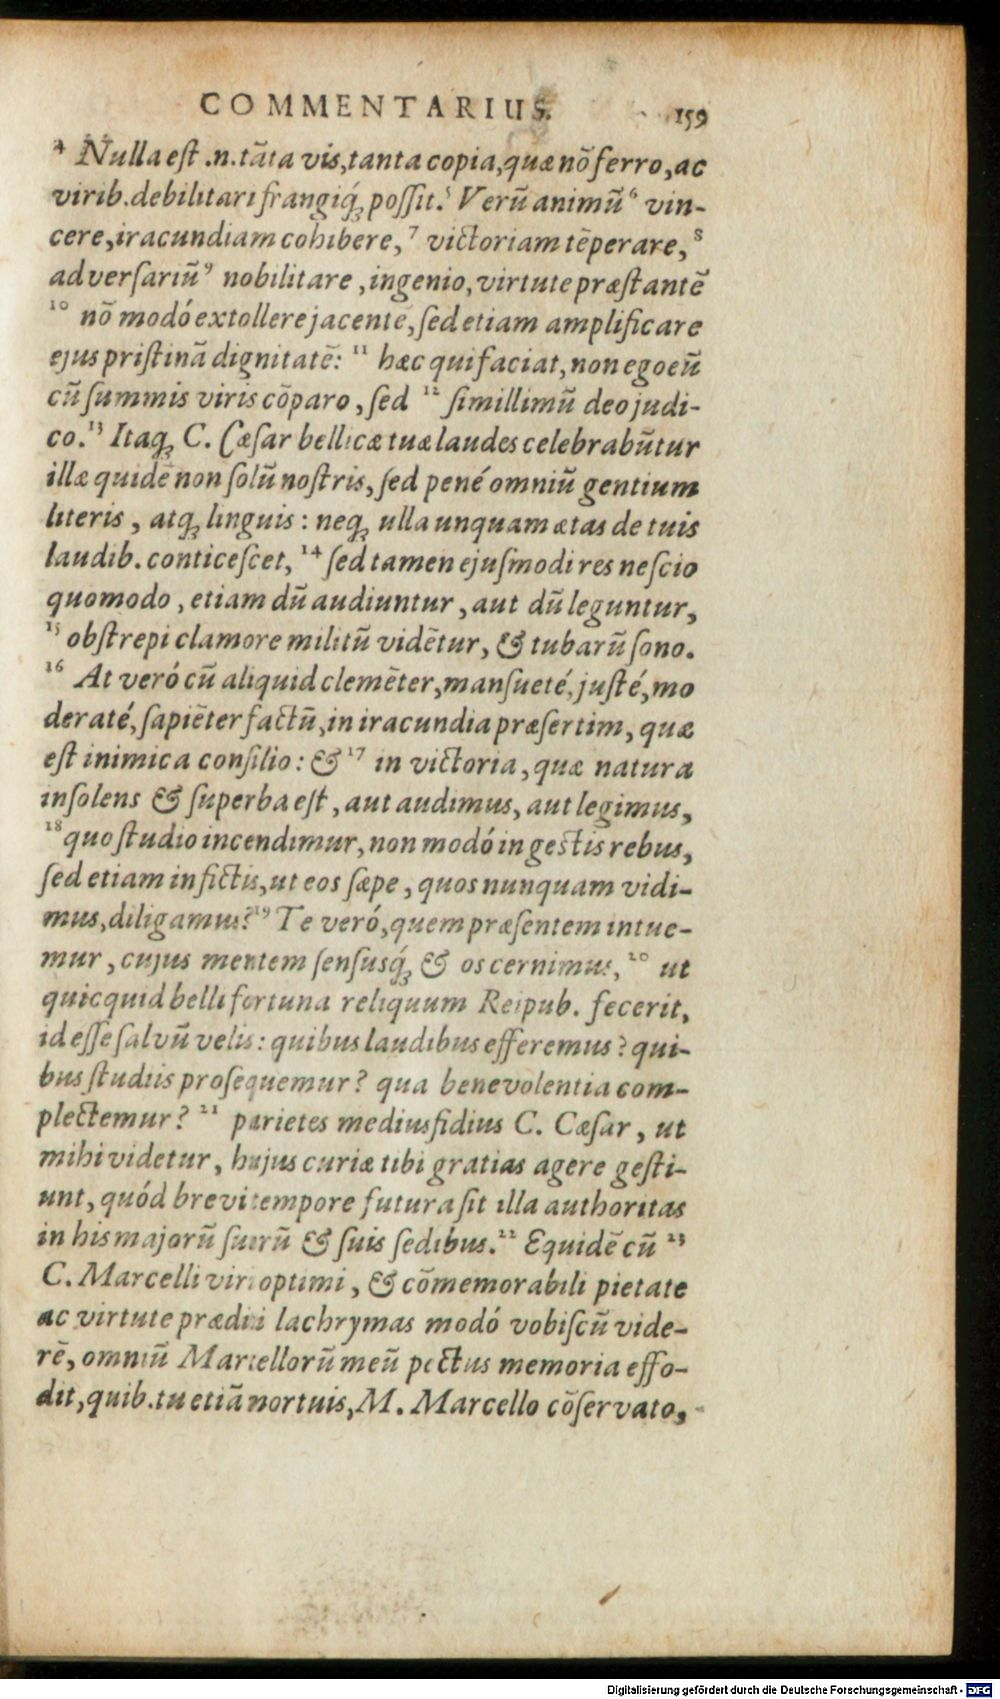 COMMENTARIUS. 159
⁴ Nulla eſt .n. tāta vis, tanta copia, quæ nō ferro, ac
virib. debilitari frangiq́ꝫ poſſit.⁵ Verū animū⁶ vin-
cere, iracundiam cohibere,⁷ victoriam tēperare,⁸
adverſariū⁹ nobilitare, ingenio, virtute præſtantē
¹⁰ nō modó extollere jacentē, ſed etiam amplificare
ejus priſtinā dignitatē: ¹¹ hæc qui faciat, non ego eū
cū ſummis viris cōparo, ſed ¹² ſimillimū deo judi-
co.¹³ Itaqꝫ C. Cæſar bellicæ tuæ laudes celebrabūtur
illæ quidē non ſolū noſtris, ſed pené omniū gentium
literis, atqꝫ linguis: neqꝫ ulla unquam ætas de tuis
laudib. conticeſcet, ¹⁴ ſed tamen ejuſmodi res neſcio
quomodo, etiam dū audiuntur, aut dū leguntur,
¹⁵ obſtrepi clamore militū vidētur, & tubarū ſono.
¹⁶ At veró cū aliquid clemēter, manſueté, juſté, mo
deraté, ſapiēter factū, in iracundia præſertim, quæ
eſt inimica conſilio: & ¹⁷ in victoria, quæ natura
inſolens & ſuperba eſt, aut audimus, aut legimus,
¹⁸ quo ſtudio incendimur, non modó in geſtis rebus,
ſed etiam in fictis, ut eos ſæpe, quos nunquam vidi-
mus, diligamus?¹⁹ Te veró, quem præſentem intue-
mur, cujus mentem ſenſusq́ꝫ & os cernimus, ²⁰ ut
quicquid belli fortuna reliquum Reipub. fecerit,
id eſſe ſalvū velis: quibus laudibus efferemus? qui-
bus ſtudiis proſequemur? qua benevolentia com-
plectemur? ²¹ parietes mediusfidius C. Cæſar, ut
mihi videtur, hujus curiæ tibi gratias agere geſti-
unt, quód brevi tempore futura ſit illa authoritas
in his majorū ſuorū & ſuis ſedibus.²² Equidē cū ²³
C. Marcelli viri optimi, & cōmemorabili pietate
ac virtute præditi lachrymas modó vobiſcū vide-
rē, omniū Marcellorū meū pectus memoria effo-
dit, quib. tu etiā mortuis, M. Marcello cōſervato,
Digitalisierung gefördert durch die Deutsche Forschungsgemeinschaft - DFG